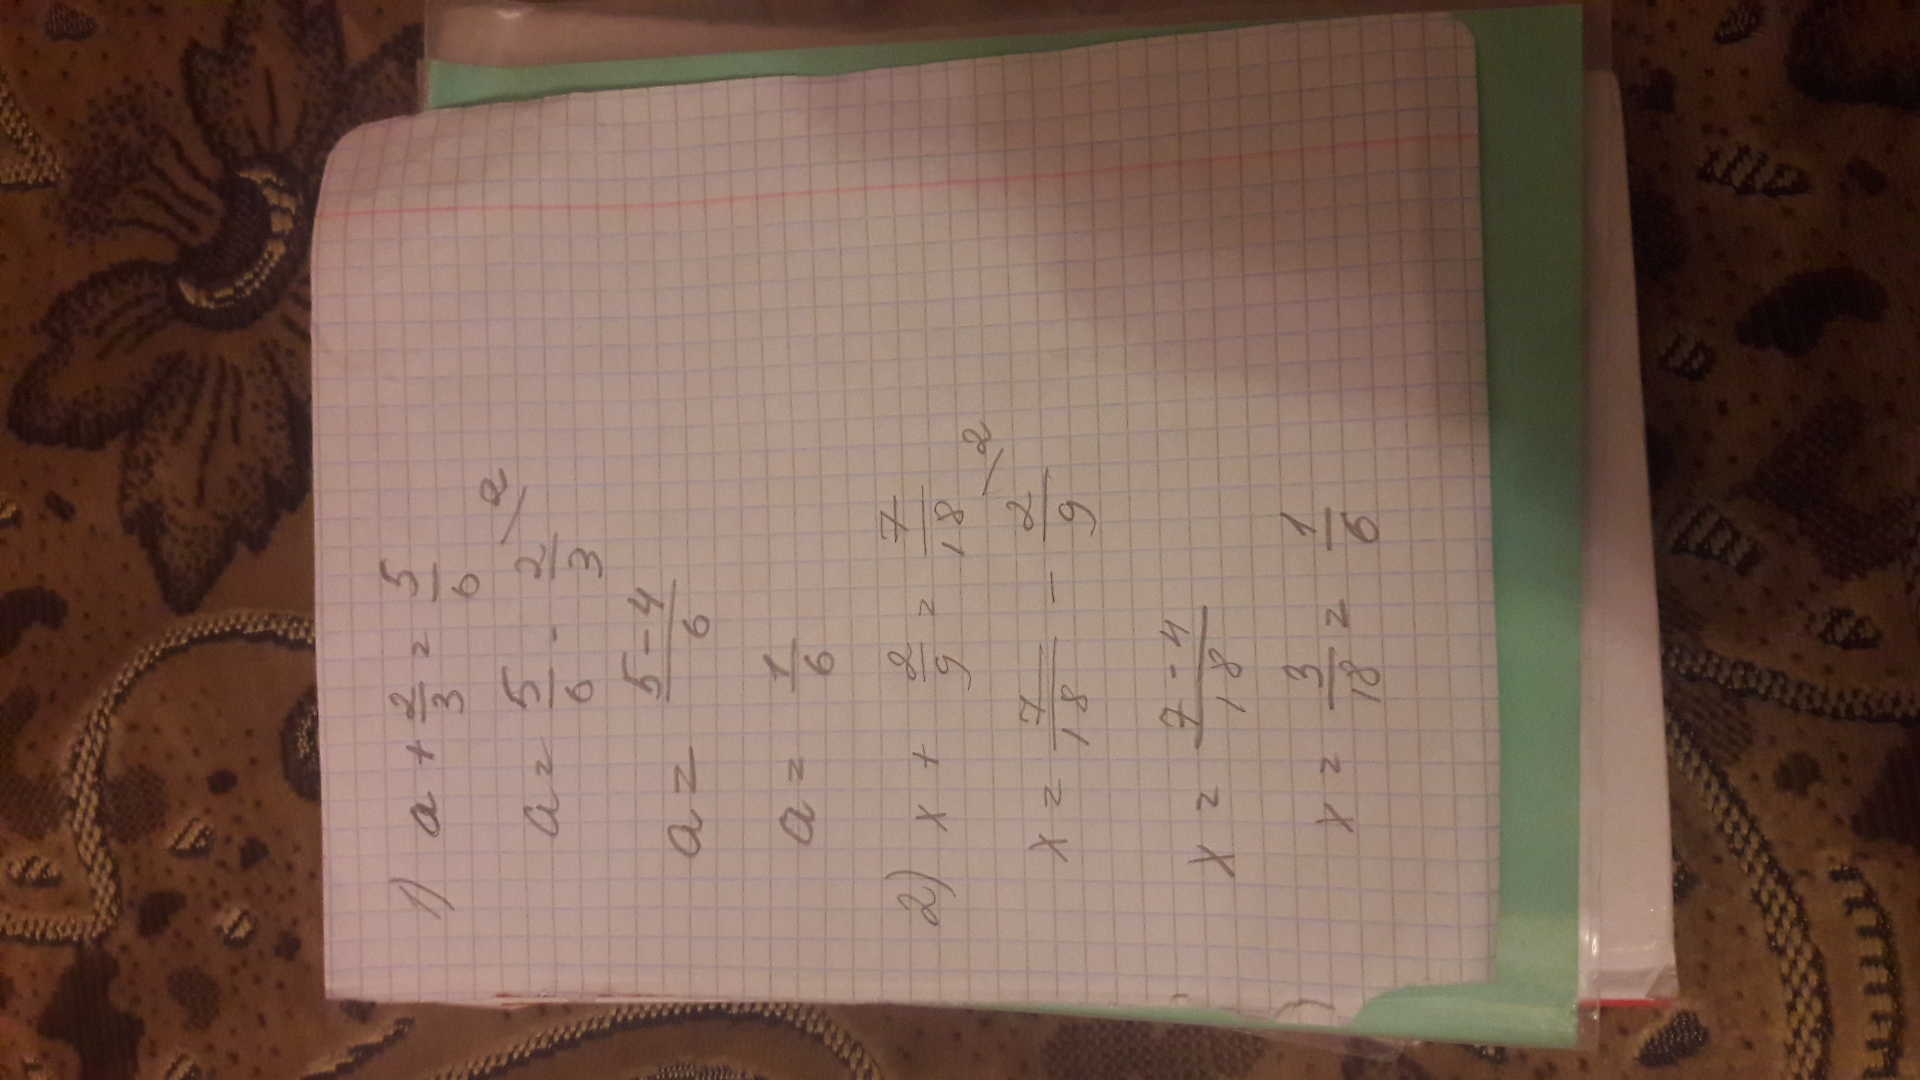 1) a + 2/3 = 5/6
a = 5/6 - 2/3 \2
a = 5-4/6
a = 1/6
2) x + 2/9 = 7/18
x = 7/18 - 2/9 \2
x = 7-4/18
x = 3/18 = 1/6